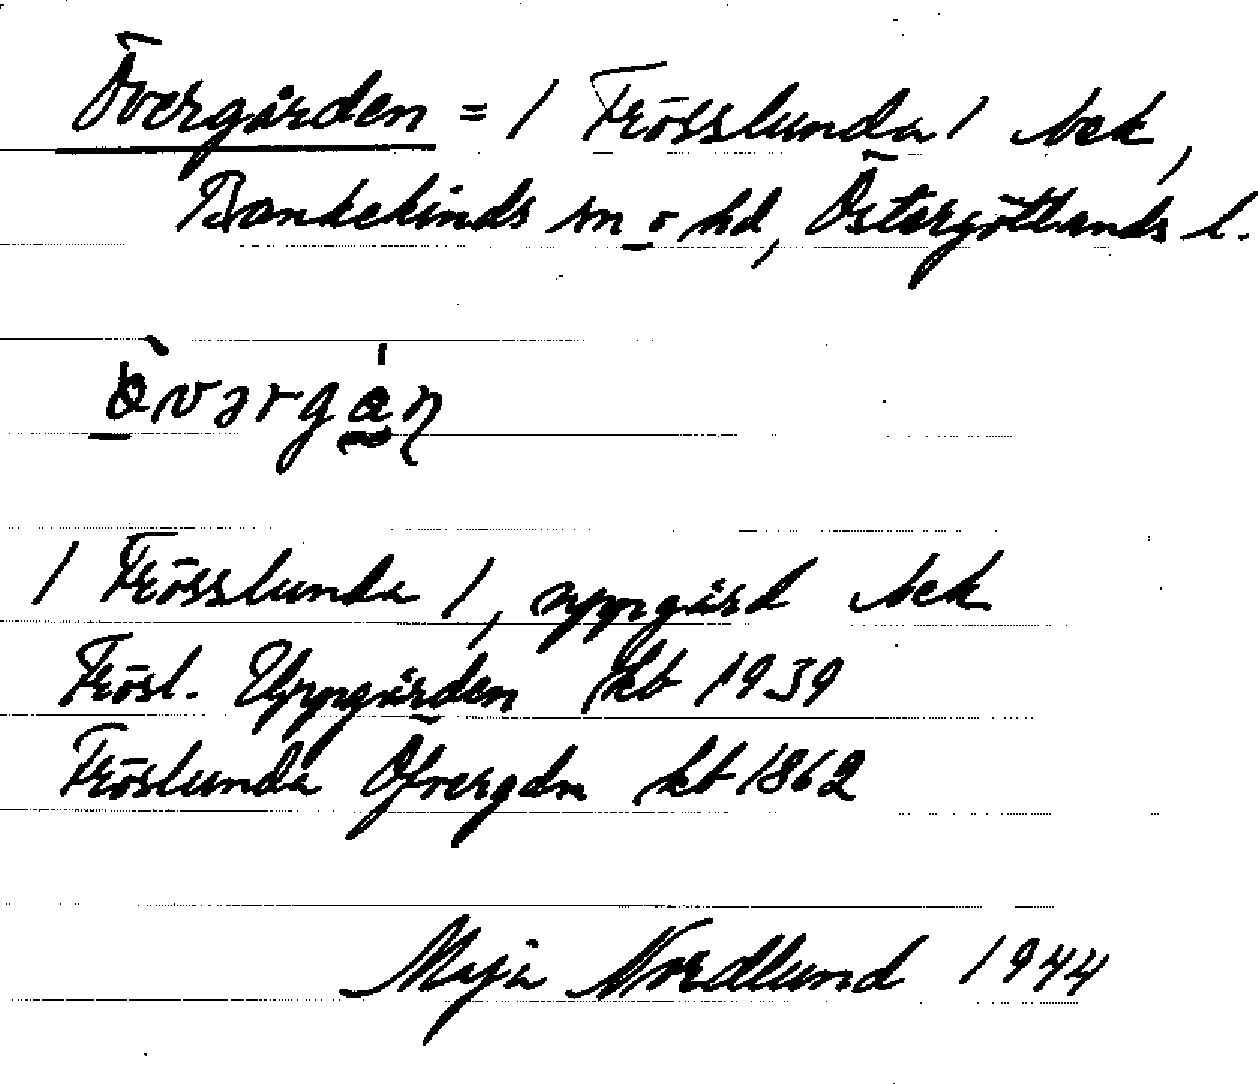 Övergården = / Frösslunda / bek,
Bankekinds sn o hd, Östergötlands l.
/ Frösslunda /, uppgård bek
Frösl. Uppgården kb 1939
Fröslunda Öfvergdn kb 1862
Maja Nordlund 1944